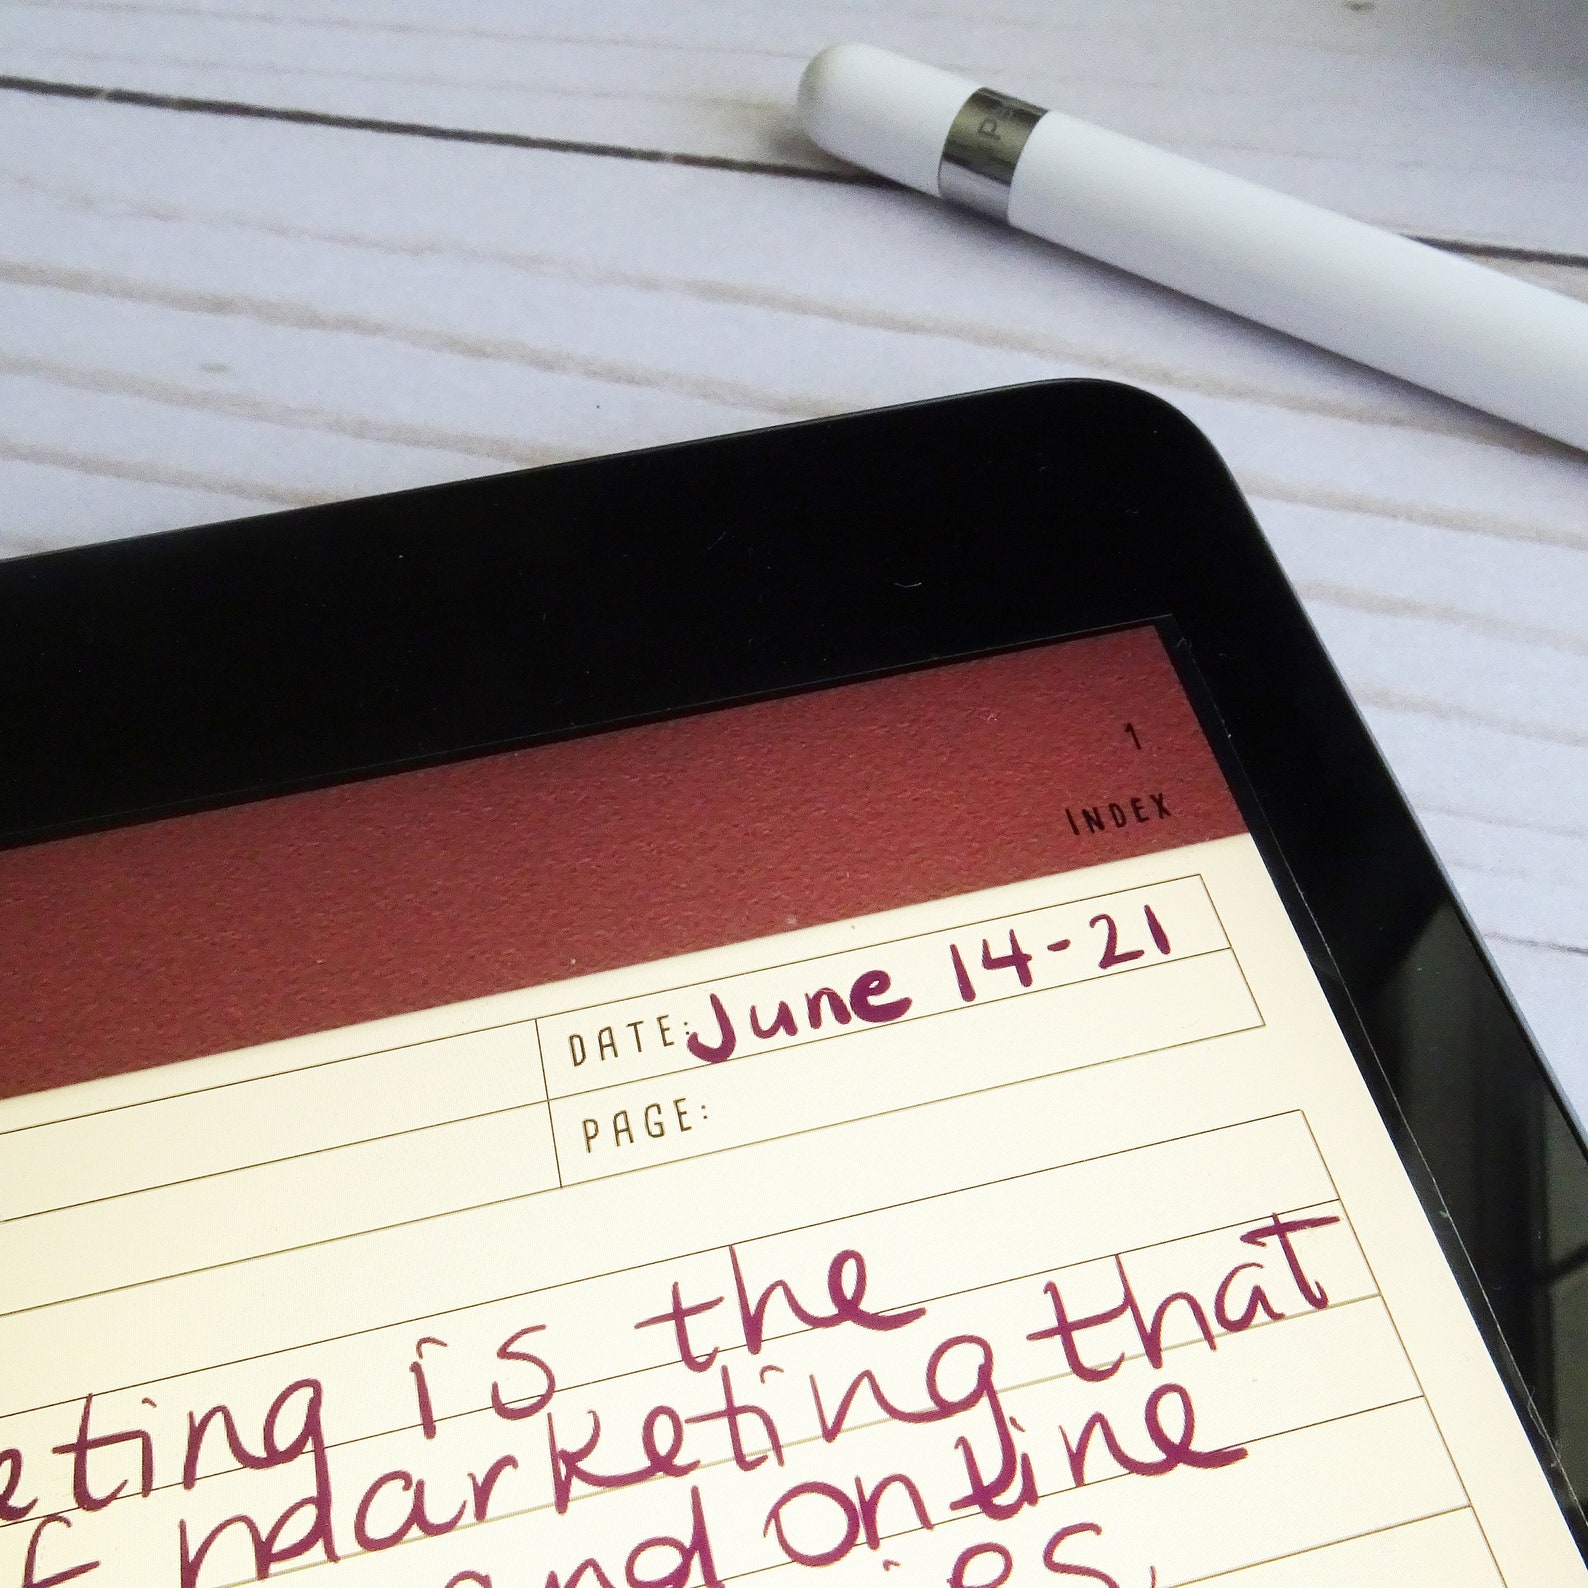 1
INDEX
DATE: June 14-21
PAGE:
eting is the
f marketing that
and online
ies.